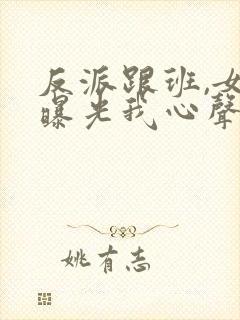 反派跟班,女
曝光我心聲
姚有志